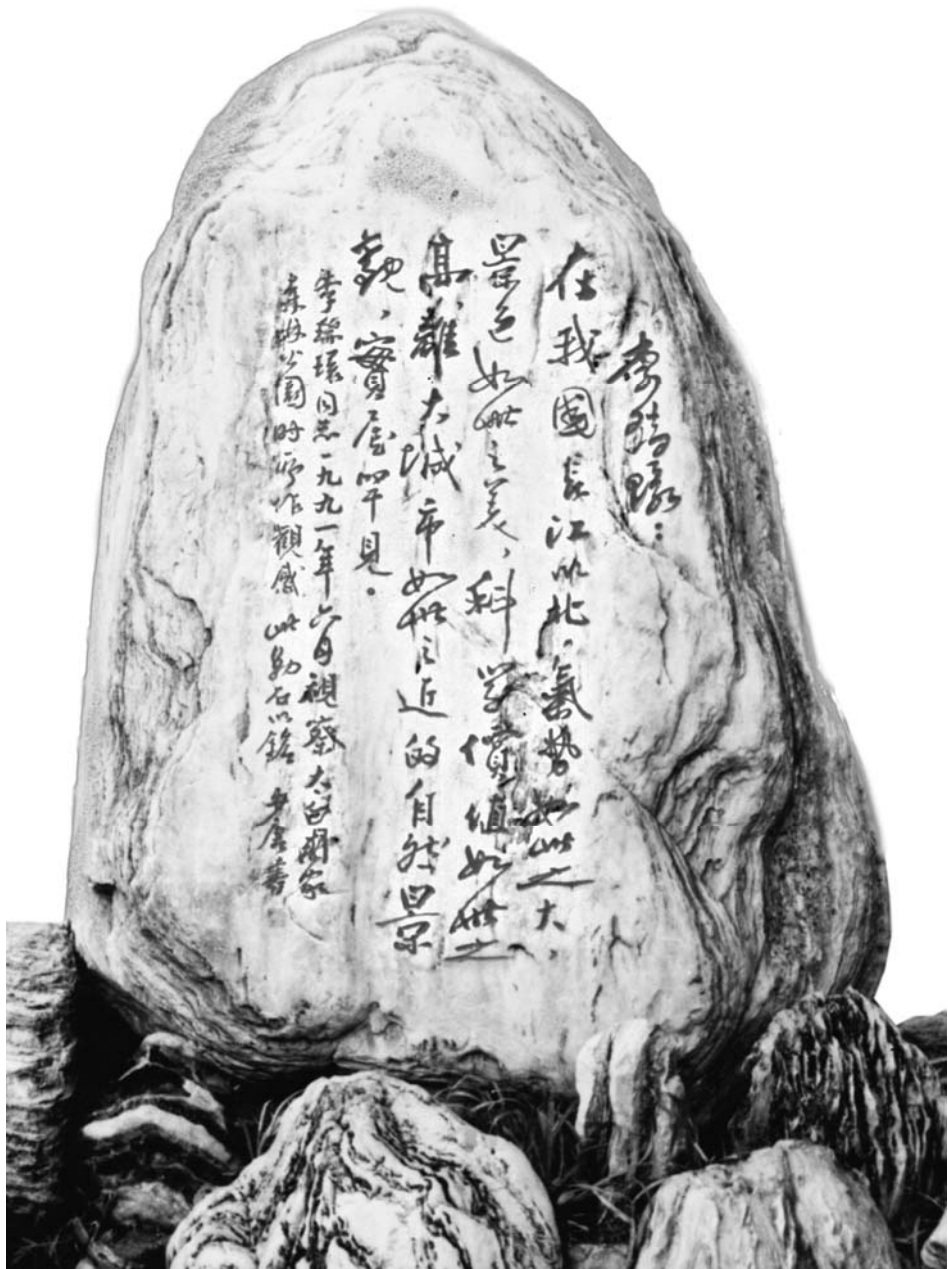 李瑞環：
在我國長江以北，氣勢如此之大，
景色如此之美，科學價值如此之
高，離大城市如此之近的自然景
觀，實屬罕見。
李瑞環同志一九九一年六月視察太白國家
森林公園時所作觀感 此勒石以銘 書